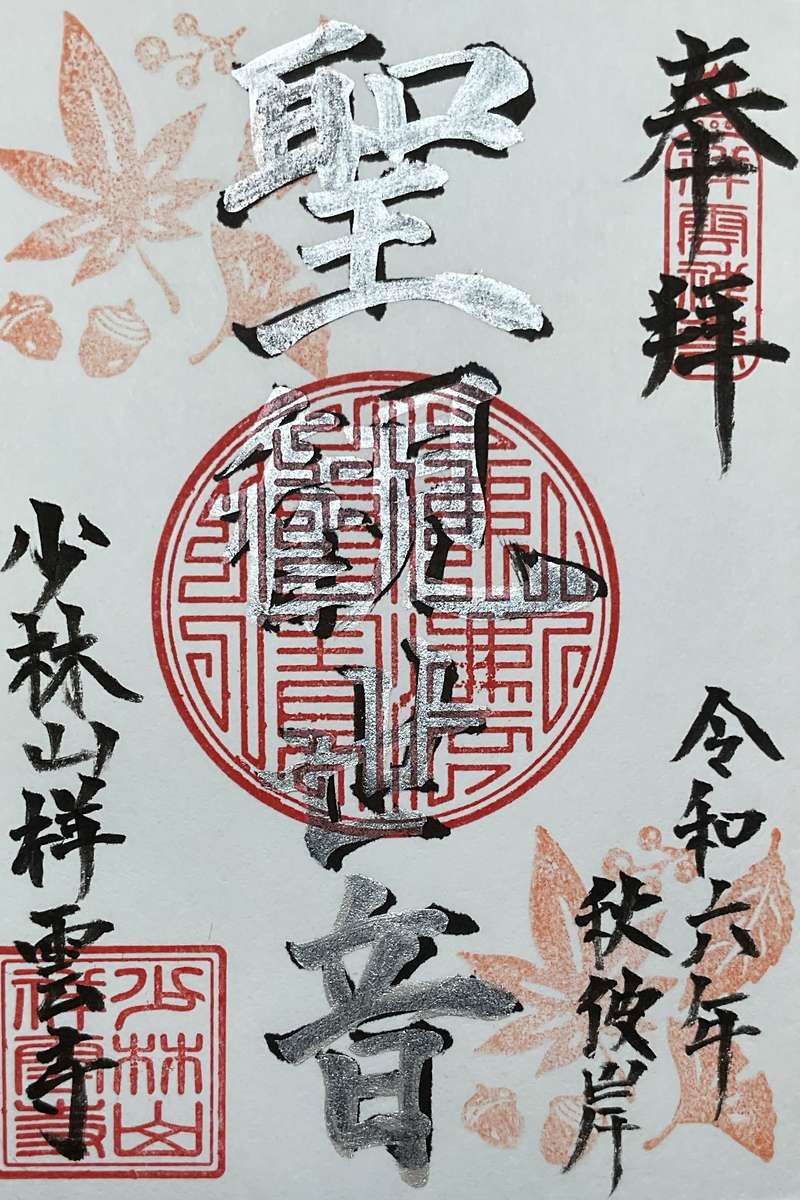 奉拝
令和六年
秋彼岸
聖観世音
少林山祥雲寺
少林山
祥雲寺